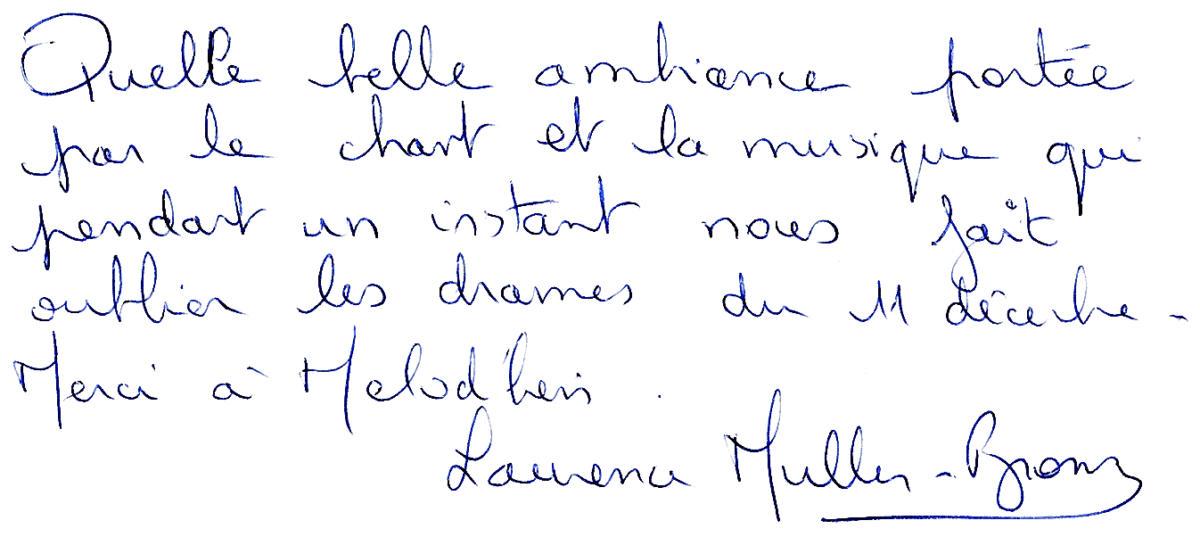 Quelle belle ambiance portée
par le chant et la musique qui
pendant un instant nous fait
oublier les drames du 11 décembre.
Merci à Melod'hein.
Laurence Muller-Bronn